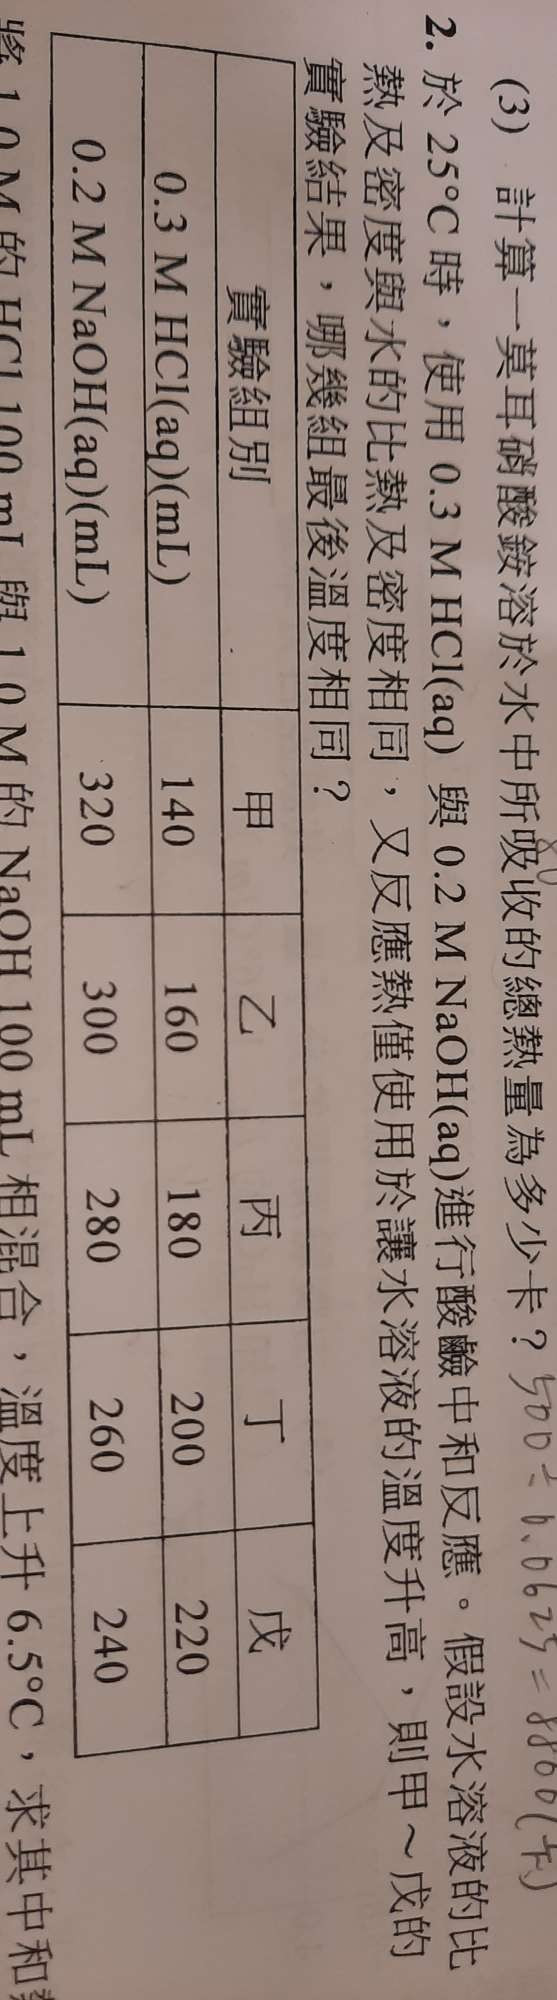 (3) 計算一莫耳硝酸銨溶於水中所吸收的總熱量為多少卡？ 500÷0.0625=8800(卡)
2. 於 25°C 時，使用 0.3 M HCl(aq) 與 0.2 M NaOH(aq)進行酸鹼中和反應。假設水溶液的比
熱及密度與水的比熱及密度相同，又反應熱僅使用於讓水溶液的溫度升高，則甲～戊的
實驗結果，哪幾組最後溫度相同？
實驗組別 甲 乙 丙 丁 戊
0.3 M HCl(aq)(mL) 140 160 180 200 220
0.2 M NaOH(aq)(mL) 320 300 280 260 240
將 1.0 M 的 HCl 100 mL 與 1.0 M 的 NaOH 100 mL 相混合，溫度上升 6.5°C，求其中和